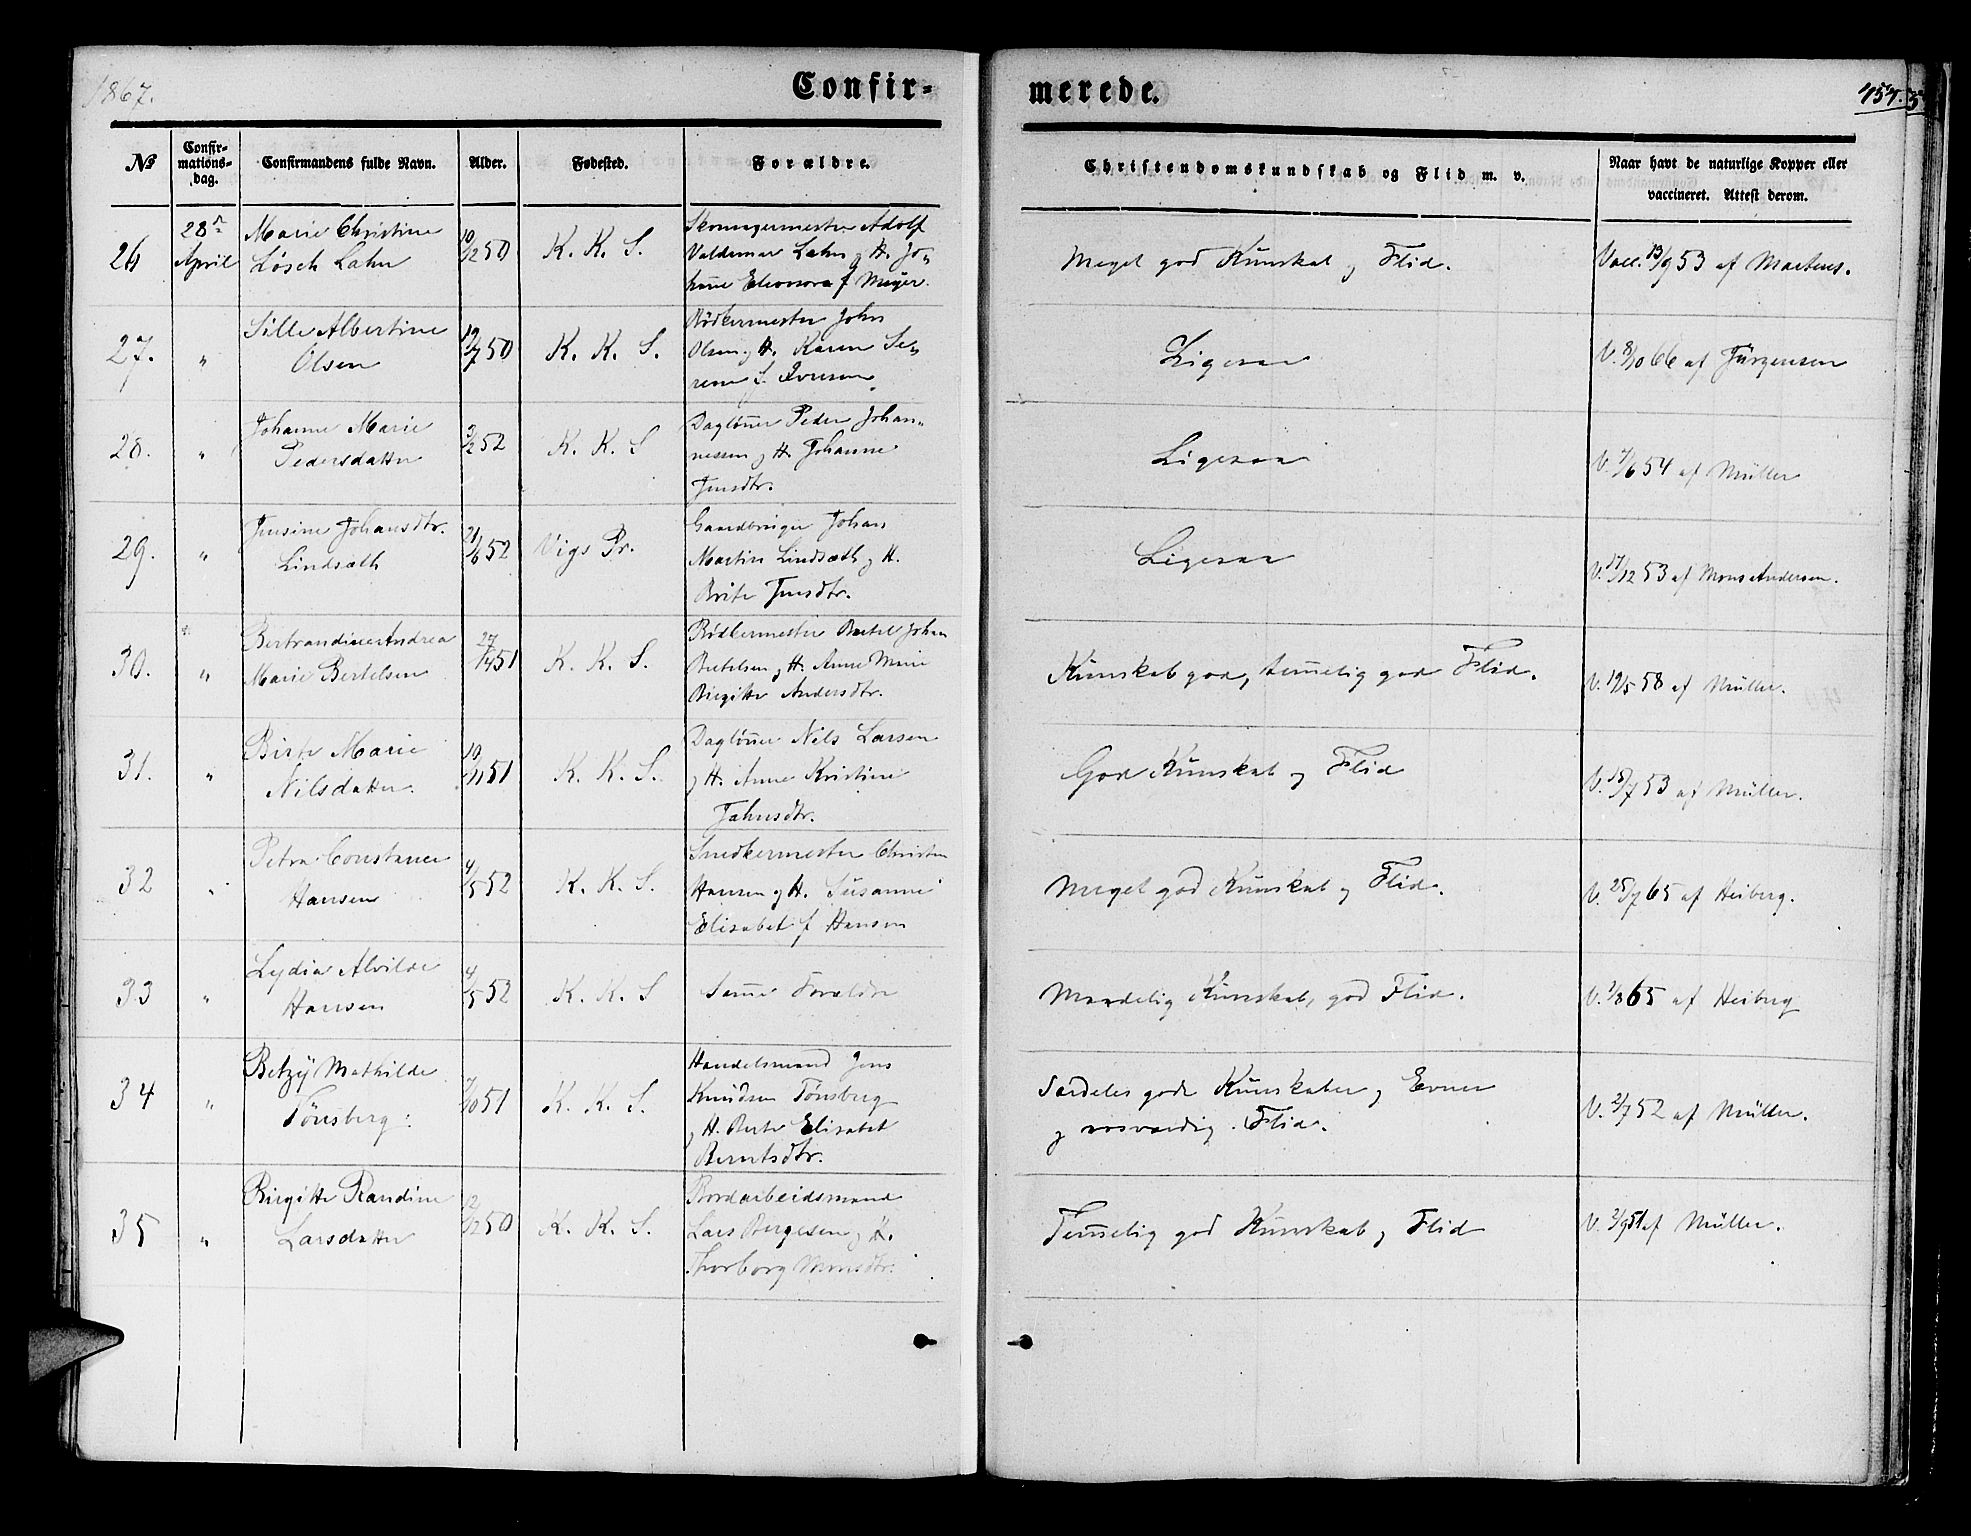 1867.
Confir-
merede.
454.
№
Confir-
mations-
dag.
Confirmandens fulde Navn.
Alder.
Fødested.
Forældre.
Christendomskundskab og Flid m. v.
Naar havt de naturlige Kopper eller
vaccineret. Attest derom.
26
28de
April
Marie Christine
Løsch Lahn
10/12 50
K. K. S.
Skomagermester Adolf
Valdemar Lahn og H. Jo-
hanne Eleonora f Meyer.
Meget god Kunskab og Flid.
Vacc. 13/9 53 af Martens.
27.
"
Sille Albertine
Olsen
19/7 50
K. K. S.
Bødkermester John
Olsen og H. Karen Se-
rene S. Iversen
Ligesaa
V. 8/10 66 af Jürgensen
28.
"
Johanne Marie
Pedersdatter
3/2 52
K. K. S
Dagløner Peder Johan-
nessen og H. Johanne
Jensdtr.
Ligesaa
V. 7/6 54 af Müller
29.
"
Jensine Johansdtr.
Lindsæth
21/6 52
Vigs Pr.
Gaardbruger Johan
Martin Lindsæth og H.
Brite Jensdtr.
Ligesaa
V. 17/12 53 af Mons Andersen.
30.
"
Bertrandine Andrea
Marie Bertelsen
27/4 51
K. K. S.
Bødkermester Bertel Johan
Bertelsen og H. Anne Marie
Birgitte Andersdtr.
Kunskab god, temelig god Flid.
V. 19/5 58 af Müller.
31.
"
Birte Marie
Nilsdatter.
10/11 51
K. K. S.
Dagløner Nils Larsen
og H. Anne Kristine
Jahnsdtr.
God Kunskab og Flid
V. 15/7 53 af Müller.
32
"
Petra Constance
Hansen
4/5 52
K. K. S.
Snedkermester Christen
Hansen og H. Susanne
Elisabet f Hansen
Meget god Kunskab og Flid.
V. 25/7 65 af Heiberg.
33
"
Lydia Alvilde
Hansen
4/5 52
K. K. S
Same Forældre
Maadelig Kunskab, god Flid.
V. 1/8 65 af Heiberg
34
"
Betzy Mathilde
Tønsberg
7/10 51
K. K. S.
Handelsmand Jens
Knudsen Tønsberg
og H. Berte Elisabet
Berntsdtr.
Særdeles gode Kunskaber og Evner
og rosværdig Flid.
V. 2/7 52 af Müller.
35
"
Birgitte Randine
Larsdatter
12/12 50
K. K. S.
Bordarbeidsmand
Lars Børgesen og H.
Thorborg Monsdtr.
Temelig god Kunskab og Flid
V. 2/9 51 af Müller.